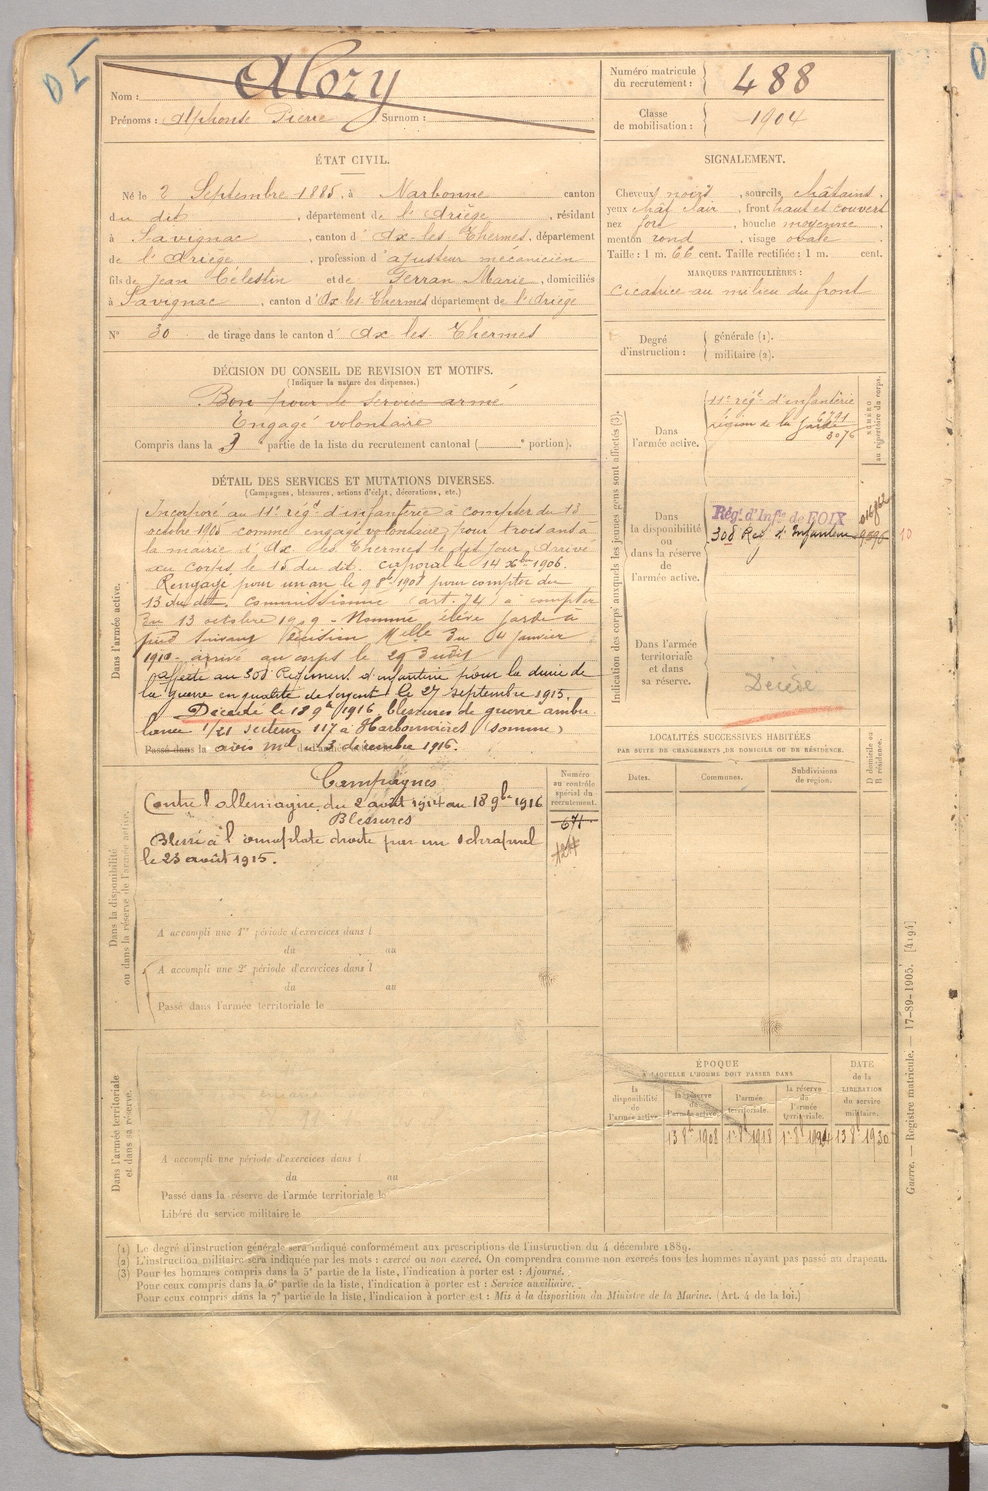 DI
Nom : Alozy
Prénoms : Alphonse Pierre Surnom :
Numéro matricule du recrutement : 488
Classe de mobilisation : 1904
ÉTAT CIVIL.
Né le 2 Septembre 1885, à Narbonne canton
du dit, département de l'Ariège, résidant
à Savignac, canton d'Ax-les-Thermes, département
de l'Ariège, profession d'ajusteur mécanicien
fils de Jean Célestin et de Ferran Marie, domiciliés
à Savignac, canton d'Ax les Thermes département de l'Ariège
N° 30 de tirage dans le canton d'Ax les Thermes
SIGNALEMENT.
Cheveux noirs, sourcils châtains,
yeux chât clair, front haut et couvert
nez fort, bouche moyenne,
menton rond, visage ovale
Taille : 1 m. 66 cent. Taille rectifiée : 1 m. cent.
MARQUES PARTICULIÈRES :
cicatrice au milieu du front
Degré d'instruction : générale (1).
militaire (2).
DÉCISION DU CONSEIL DE REVISION ET MOTIFS.
(Indiquer la nature des dispenses.)
Bon pour le service armé
Engagé volontaire
Compris dans la 3 partie de la liste du recrutement cantonal ( e portion).
DÉTAIL DES SERVICES ET MUTATIONS DIVERSES.
(Campagnes, blessures, actions d'éclat, décorations, etc.)
Dans l'armée active.
Incorporé au 11e régt d'infanterie à compter du 13
octobre 1905 comme engagé volontaire pour trois ans à
la mairie d'Ax les Thermes le dit jour. Arrivé
au corps le 15 du dit. Caporal le 14 Xbre 1906.
Rengagé pour un an le 9 8bre 1908 pour compter du
13 du dit. Commissionné (art. 74) à compter
du 13 octobre 1909 - Nommé élève garde à
pied suivant décision Mlle du 4 janvier
1910 - arrivé au corps le 29 dudit
Affecté au 308 Régiment d'infanterie pour la durée de
la guerre en qualité de sergent le 27 septembre 1915.
Décédé le 18 9bre 1916 blessures de guerre ambu
lance 1/21 secteur 117 à Harbonnières (Somme)
Passé dans la avis mel du 3 décembre 1916.
Indication des corps auxquels les jeunes gens sont affectés (3).
Dans l'armée active.
11e régt d'infanterie
Légion de la Garde
6291
5076
NUMÉRO au répertoire du corps.
Dans la disponibilité ou dans la réserve de l'armée active.
Régt d'Infrie de FOIX
308 Reg d'Infanterie
10
Dans l'armée territoriale et dans sa réserve.
Décédé
LOCALITÉS SUCCESSIVES HABITÉES
PAR SUITE DE CHANGEMENTS DE DOMICILE OU DE RÉSIDENCE.
Dates. Communes. Subdivisions de région.
D domicile ou R résidence.
Dans la disponibilité ou dans la réserve de l'armée active.
Campagnes
Contre l'allemagne, du 2 août 1914 au 18 9bre 1916
Blessures
Blessé à l'omoplate droite par un schrapnel
le 23 août 1915.
Numéro au contrôle spécial du recrutement.
671
A accompli une 1re période d'exercices dans l
du au
A accompli une 2e période d'exercices dans l
du au
Passé dans l'armée territoriale le
Dans l'armée territoriale et dans sa réserve.
A accompli une période d'exercices dans l
du au
Passé dans la réserve de l'armée territoriale le
Libéré du service militaire le
ÉPOQUE
A LAQUELLE L'HOMME DOIT PASSER DANS
la disponibilité de l'armée active.
la réserve de l'armée active.
l'armée territoriale.
la réserve de l'armée territoriale.
DATE de la LIBÉRATION du service militaire.
13 8bre 1908 1er 8bre 1918 1er 8bre 1924 13 8bre 1930
(1) Le degré d'instruction générale sera indiqué conformément aux prescriptions de l'instruction du 4 décembre 1889.
(2) L'instruction militaire sera indiquée par les mots : exercé ou non exercé. On comprendra comme non exercés tous les hommes n'ayant pas passé au drapeau.
(3) Pour les hommes compris dans la 5e partie de la liste, l'indication à porter est : Ajourné.
Pour ceux compris dans la 6e partie de la liste, l'indication à porter est : Service auxiliaire.
Pour ceux compris dans la 7e partie de la liste, l'indication à porter est : Mis à la disposition du Ministre de la Marine. (Art. 4 de la loi.)
Guerre. — Registre matricule. — 17-89-1905. [4194]